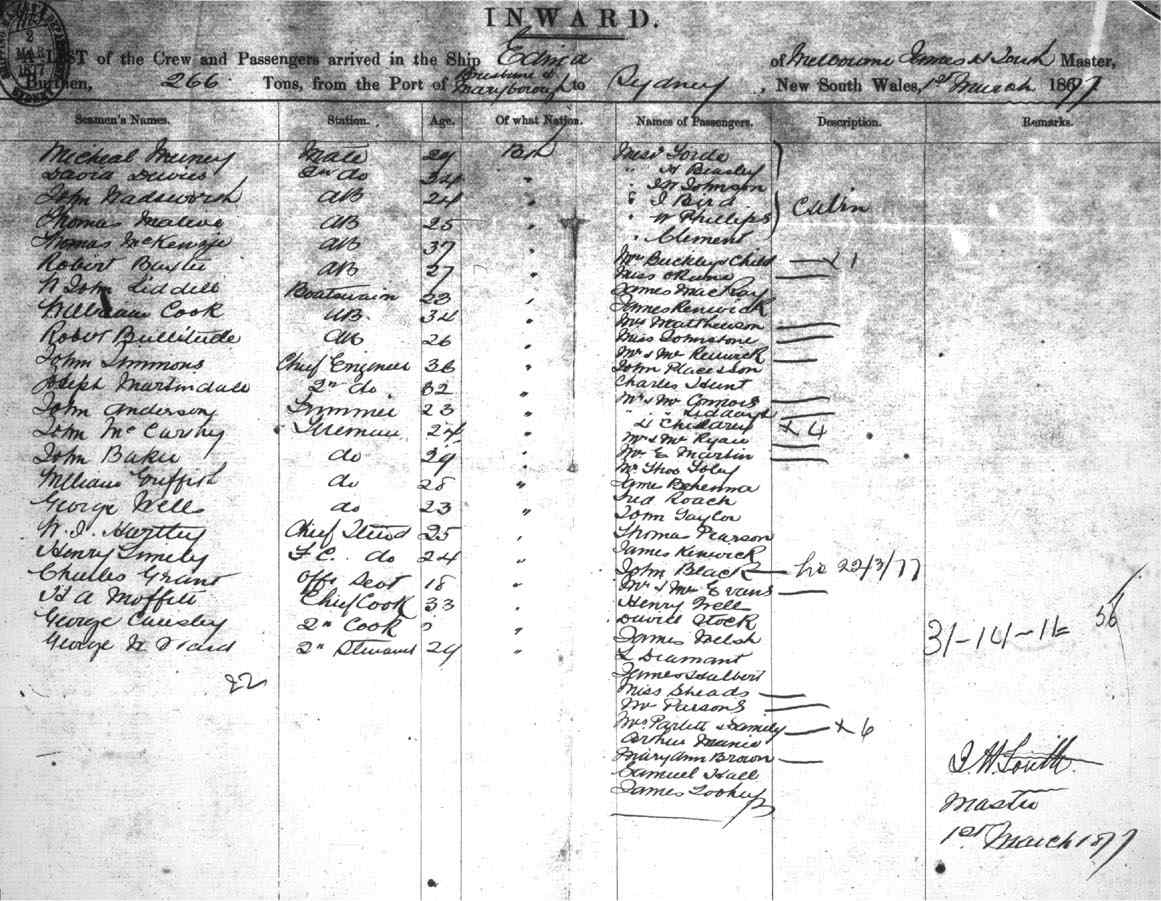 INWARD.
A LIST of the Crew and Passengers arrived in the Ship Edina of Melbourne Master,
Burthen, 266 Tons, from the Port of Brisbane & Maryborough to Sydney, New South Wales, 1st March 1877
Seamen's Names. Station. Age. Of what Nation. Names of Passengers. Description. Remarks.
Micheal Mate 29 Brit Mesr
David Davies 2nd do 34 " " H Beasley
John Wadsworth AB 24 " " J W Johnson
Thomas AB 25 " " J Bird Cabin
" W Phillips
Thomas McKenzie AB 37 " " Clement
Robert AB 27 " Mrs Buckley & Child x 1
Miss
John Liddell Boatswain 23 " James MacKay
William Cook AB 34 " James Renwick
Mrs Matthewson
Robert Bullitude AB 26 " Miss Johnstone
John Simmons Chief Engineer 36 " Mr & Mrs Renwick
John
Joseph Martindale 2nd do 32 " Charles Hunt
John Anderson Trimmer 23 " Mr & Mrs Connors
" "
John McCarthy Fireman 24 " 4 Children x 4
Mr & Mrs Ryan
John Baker do 29 " Mr E Martin
Mr Thos Foley
William Griffith do 28 " James Behenna
George Wells do 23 " Fred Roach
John Taylor
W. J. Hartley Chief Stewd 25 " Thomas Pearson
Henry F.C. do 24 " James Renwick
Charles Grant Offs 18 " John Black 22/3/77
Mr & Mrs Evans
H A Moffitt Chief Cook 33 " Henry Well
George 2nd Cook " David Stock
James Welsh
George W 2nd Steward 24 " L Diamant
James Halbert
22 31-14-11= 56
Miss Sheads
Mr Parsons
Mrs Parlett & Family x 6
Arthur
Mary Ann Brown
Samuel Hall
James
J. W. South
Master
1st March 1877